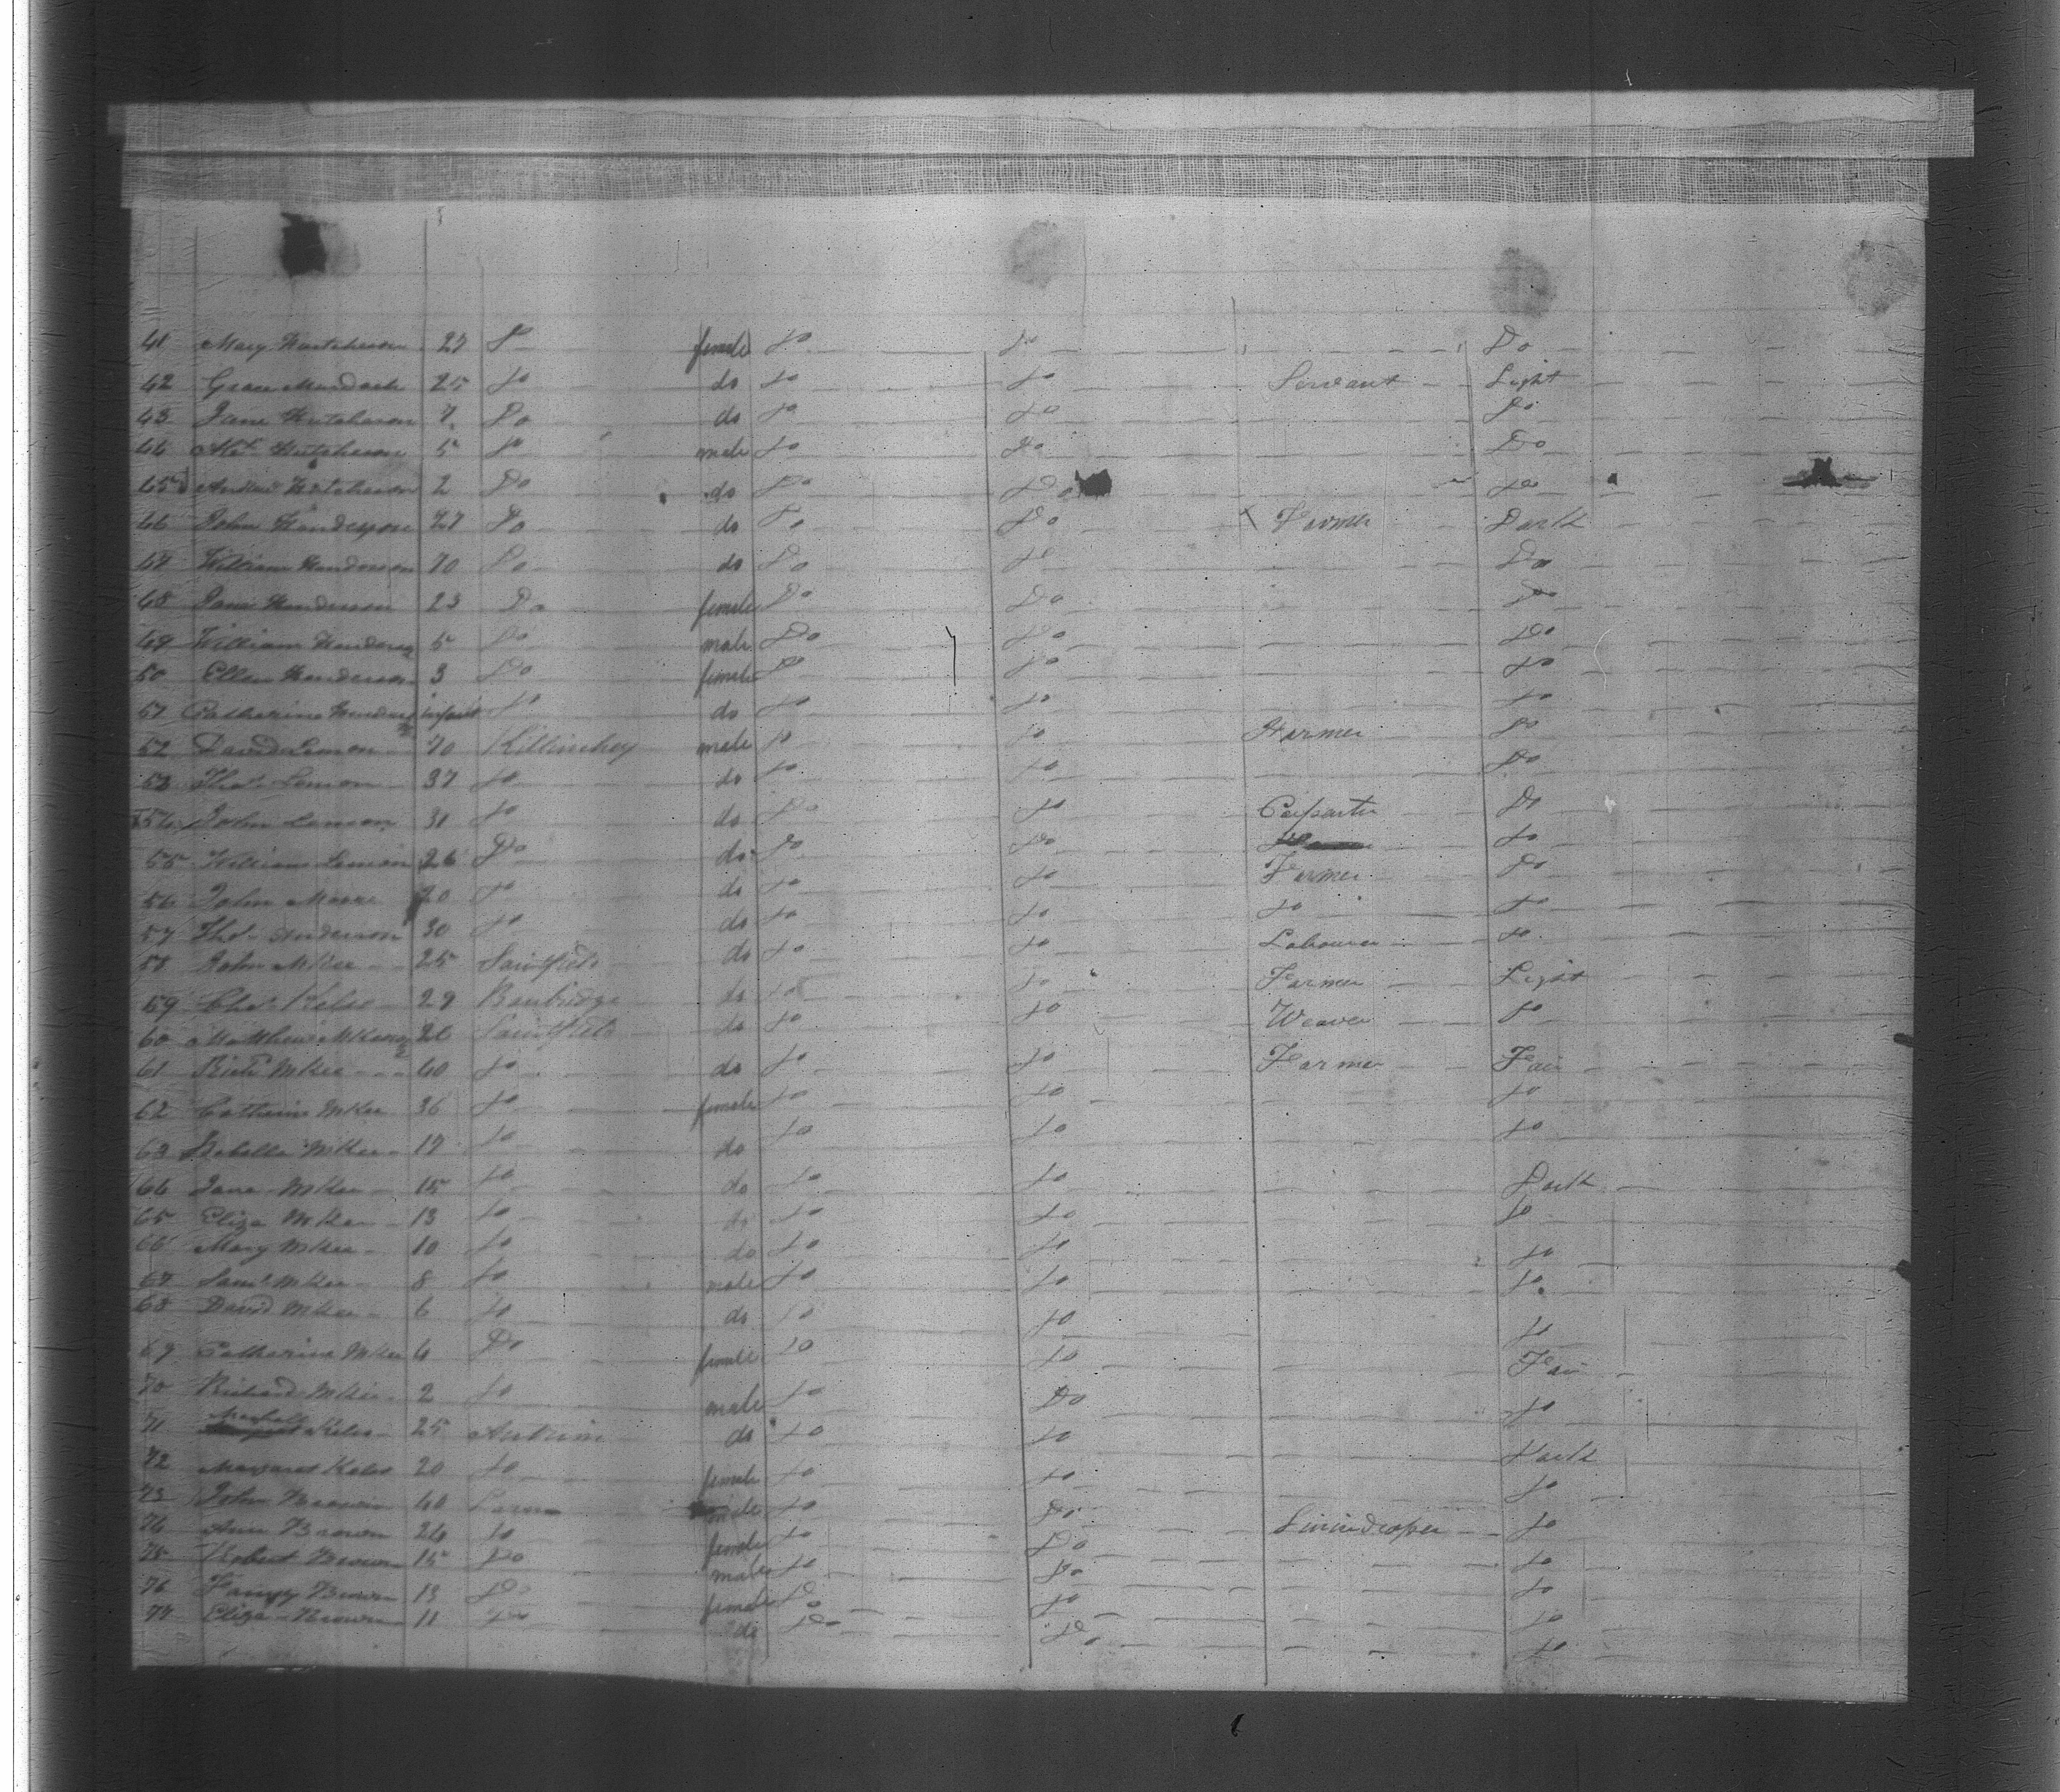 41 Mary Hutcheson 27 Do female Do Do Do
42 Grace Murdock 25 Do do Do Do Servant Light
43 Jane Hutcheson 7 Do do Do Do Do
44 Alexr Hutcheson 5 Do male Do Do Do
45 Andrew Hutcheson 2 Do do Do Do Do
46 John Henderson 27 Do do Do Do Farmer Dark
47 William Henderson 70 Do do Do Do Do
48 Jane Henderson 23 Do female Do Do Do
49 William Henderson 5 Do male Do Do Do
50 Ellen Henderson 3 Do female Do Do Do
51 Catharine Henderson infant Do do Do Do Do
52 David Lemon 70 Killinchey male Do Do Farmer Do
53 Thos Lemon 37 Do do Do Do Do
54 John Lemon 31 Do do Do Do Carpenter Do
55 William Lemon 26 Do do Do Do Do
56 John Moore 20 Do do Do Do Farmer Do
57 Thos Anderson 30 Do do Do Do Do Do
58 John McKee 25 Saintfield do Do Do Labourer Do
59 Chas Kelso 27 Banbridge do Do Do Farmer Light
60 Matthew 26 Saintfield do Do Do Weaver Do
61 Richd McKee 40 Do do Do Do Farmer Fair
62 Catherine McKee 36 Do female Do Do Do
63 Isabella McKee 17 Do do Do Do Do
64 Jane McKee 15 Do do Do Do Dark
65 Eliza McKee 13 Do do Do Do Do
66 Mary McKee 10 Do do Do Do Do
67 Saml McKee 8 Do male Do Do Do
68 David McKee 6 Do do Do Do Do
69 Catharine McKee 4 Do female Do Do Fair
70 Richard McKee 2 Do male Do Do Do
71 Kelso 25 Antrim do Do Do Dark
72 Margaret Kelso 20 Do female Do Do Do
73 John Brown 40 Larne male Do Do Linindraper Do
74 Ann Brown 24 Do female Do Do Do
75 Robert Brown 15 Do male Do Do Do
76 Fanny Brown 13 Do female Do Do Do
77 Eliza Brown 11 Do do Do Do Do